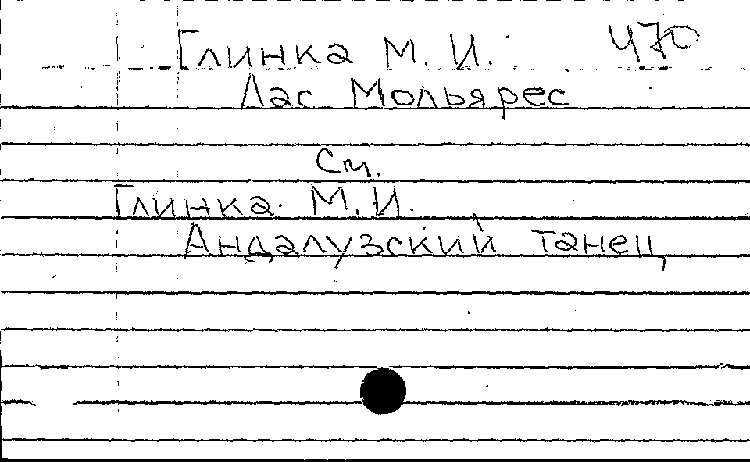 Глинка М. И. 470
Лас Мольярес
См.
Глинка М. И.
Андалузский танец